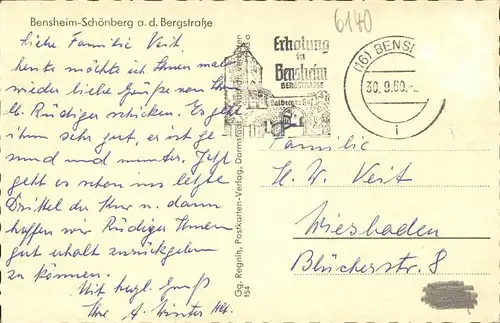 Bensheim-Schönberg a. d. Bergstraße
Liebe Familie Veit.
heute möchte ich Ihnen mal
wieder liebe Grüße von Ihrem
lb. Rüdiger schicken. Es geht
ihm sehr gut, er ist ge
sund und munter. Jetzt
geht es schon ins letzte
Drittel der Kur u. dann
hoffen wir Rüdiger Ihnen
gut erholt zurückgeben
zu können.
Mit herzl. Gruß
Ihre A. Winter
Gg. Regnitz, Postkarten-Verlag, Darmstadt
154
6140
Erholung
in
Bensheim
BERGSTRASSE
(16) BENSH
30.9.60.-
i
Familie
H. W. Veit
Wiesbaden
Blücherstr. 8